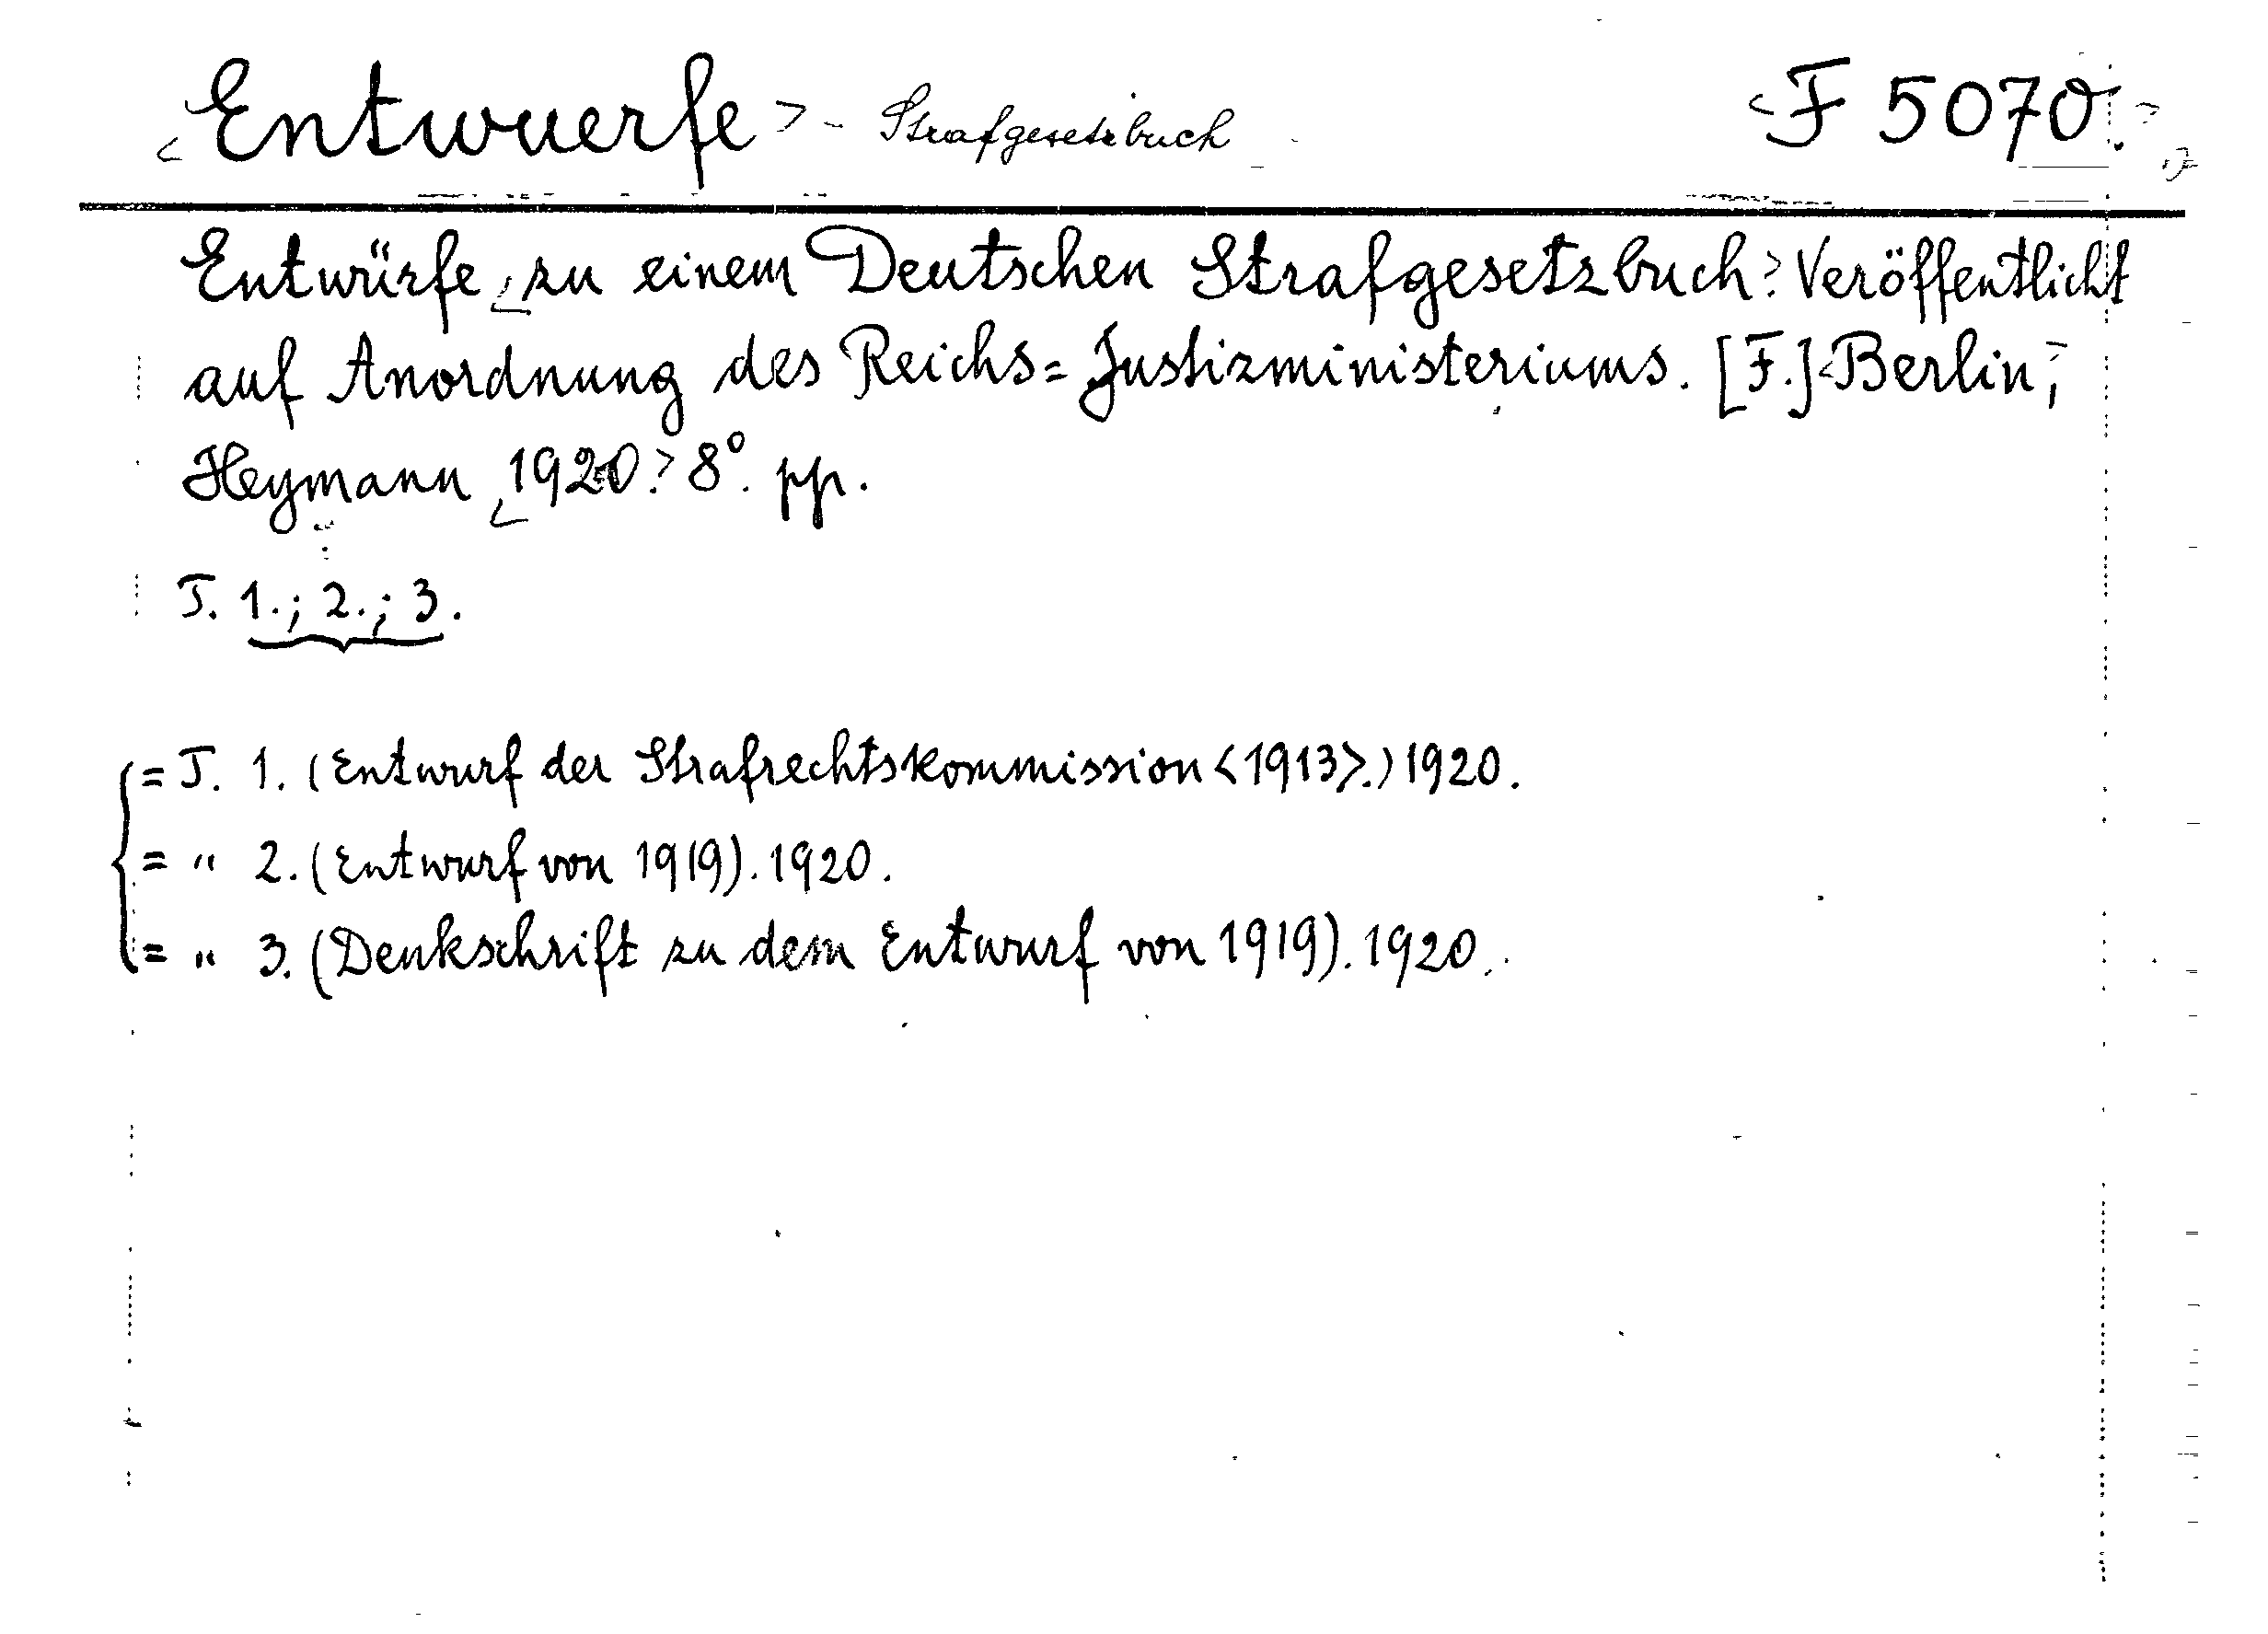 <Entwuerfe> - Strafgesetzbuch <F 5070.>
Entwürfe <zu einem Deutschen Strafgesetzbuch.> Veröffentlicht
auf Anordnung des Reichs=Justizministeriums. [F.] <Berlin,>
Heymann <1920.> 8°. pp.
T. 1.; 2.; 3.
= T. 1. (Entwurf der Strafrechtskommission <1913>.) 1920.
= " 2. (Entwurf von 1919). 1920.
= " 3. (Denkschrift zu dem Entwurf von 1919). 1920.